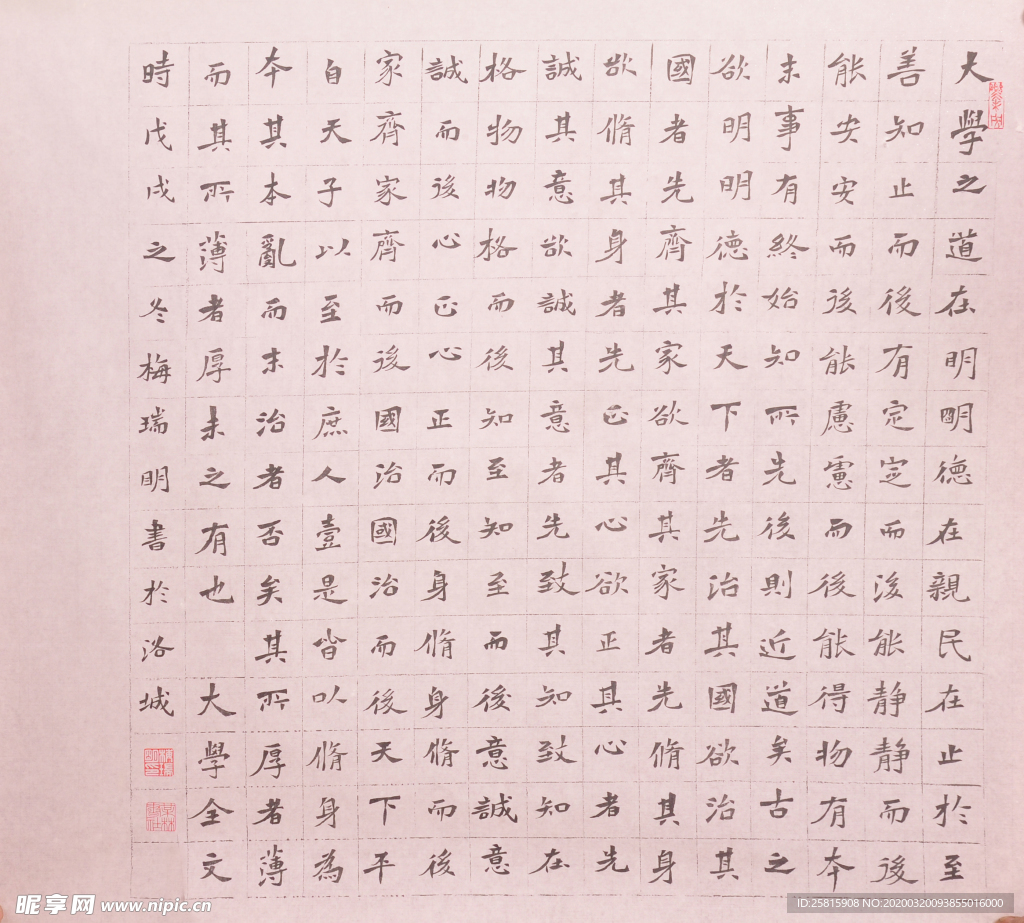 大學之道在明明德在親民在止於至
善知止而後有定定而後能静静而後
能安安而後能慮慮而後能得物有本
末事有終始知所先後則近道矣古之
欲明明德於天下者先治其國欲治其
國者先齊其家欲齊其家者先脩其身
欲脩其身者先正其心欲正其心者先
誠其意欲誠其意者先致其知致知在
格物物格而後知至知至而後意誠意
誠而後心正心正而後身脩身脩而後
家齊家齊而後國治國治而後天下平
自天子以至於庶人壹是皆以脩身為
本其本亂而末治者否矣其所厚者薄
而其所薄者厚未之有也 大學全文
時戊戌之冬梅瑞明書於洛城
昵享网 www.nipic.cn
ID:25815908 NO:20200320093855016000